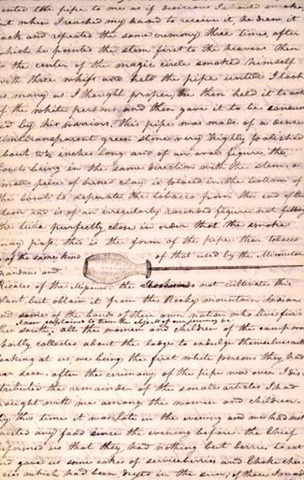 ented the pipe to me as if desirious I should smoke
but when I reached my hand to receive it, he drew it
ack and repeated the same cremony three times after
which he pointed the stem first to the heavens then
to the center of the magic circle smoked himself
with three whifs and held the pipe untill I took
as many as I thought proper he then held it to each
of the white persons and then gave it to be consu
ed by his warriors. this pipe was made of a dense
simitransparent green stone very highly polished
bout 2½ inches long and of an oval figure, the
bowl being in the same direction with the stem. a
small peice of birned clay is placed in the bottom of
the bowl to seperate the tobacco from the end of the
stem and is of an irregularly rounded figure not fitting
the tube purfectly close in order that the smoke
may pass. this is the form of the pipe. their tobacco
of the same kind of that used by the Minnetares
Mandans and
Ricares of the Missouri. the Shoshonees do not cultivate this
plant but obtain it from the Rocky mountain indians
and some of the bands of their own nation who live fur
the south. all the women and children of the camp were
shortly collected about the lodge to indulge themselves with
looking at us we being the first white persons they had
ever seen. after the cerimony of the pipe was over I dis
tributed the remainder of the small articles I had
brought with me among the women and children.
by this time it was late in the evening and we had not
tasted any food since the evening before. the Chief
informed us that they had nothing but berries to eat
and gave us some cakes of serviceberries and Choke cher
ries which had been dryed in the sun; of these I made